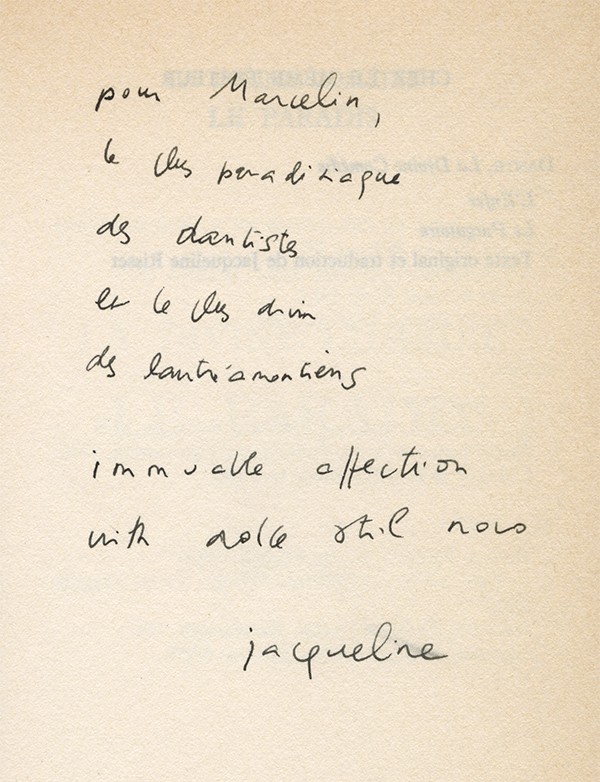 pour Marcelin,
le plus paradisiaque
des dantistes
et le plus divin
des lautréamontiens
immuable affection
with dolce stil novo
jacqueline